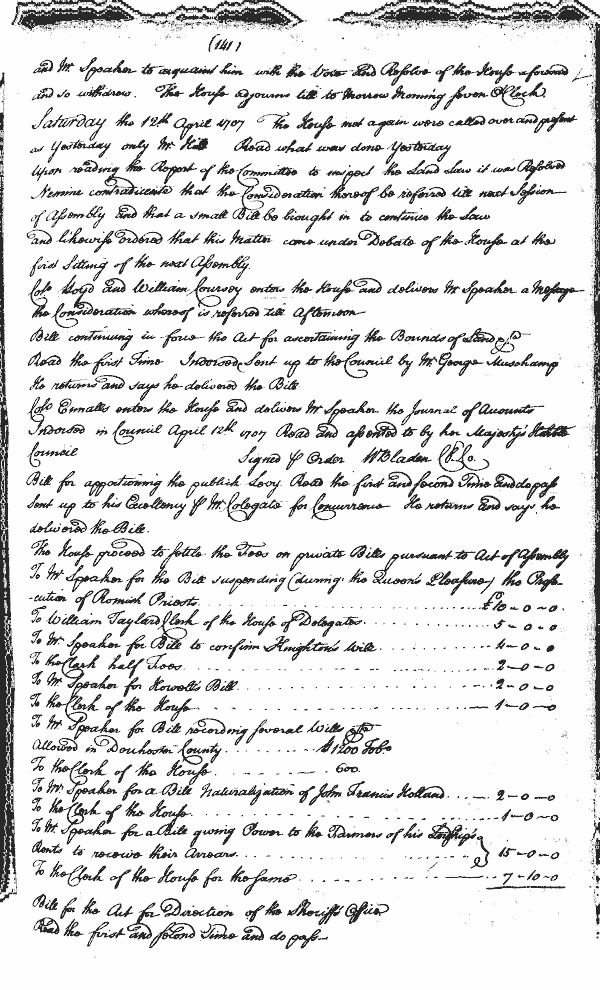 (141)
and Mr Speaker to acquaint him with the Vote and Resolve of the House aforesaid
and so withdrew. The House adjourns till to Morrow Morning Seven O'Clock
Saturday the 12th April 1707 The House met again were called over and present
as Yesterday only Mr Hill Read what was done Yesterday
Upon reading the Report of the Committee to inspect the Land Law it was Resolved
Nemine contradicente that the Consideration thereof be referred till next Session
of Assembly and that a small Bill be brought in to continue the Law
and likewise ordered that this Matter come under Debate of the House at the
first Sitting of the next Assembly.
Colo Lloyd and William Coursey enters the House and delivers Mr Speaker a Message
the Consideration whereof is referred till Afternoon
Bill continuing in force the Act for ascertaining the Bounds of Land &ca
Read the first Time Indorsed, Sent up to the Council by Mr George Muschamp
He returns and says he delivered the Bill
Colo Ennalls enters the House and delivers Mr Speaker the Journal of Accounts
Indorsed in Council April 12th 1707 Read and assented to by her Majesty's Honble
Council Signed P Order WBladen Cl. Co.
Bill for apportioning the publick Levy Read the first and second Time and do pass
Sent up to his Excellency P Mr Colegate for Concurrence He returns and says he
delivered the Bill.
The House proceed to settle the Fees on private Bills pursuant to Act of Assembly
To Mr Speaker for the Bill suspending (during the Queen's Pleasure) the Prose-
-cution of Romish Priests £10-0-0.
To William Taylard Clerk of the House of Delegates 5-0-0
To Mr Speaker for Bill to confirm Knighton's Will 4-0-0
To the Clerk half Fees 2-0-0
To Mr Speaker for Howell's Bill 2-0-0
To the Clerk of the House 1-0-0
To Mr Speaker for Bill recording several Wills &ca
Allowed in Dorchester County 1200 Tobo
To the Clerk of the House 600.
To Mr Speaker for a Bill Naturalization of John Francis Holland 2-0-0
To the Clerk of the House 1-0-0
To Mr Speaker for a Bill giving Power to the Farmers of his Lordship's
Rents to receive their Arrears 15-0-0
To the Clerk of the House for the same 7-10-0
Bill for the Act for Direction of the Sheriff's Office
Read the first and second Time and do pass